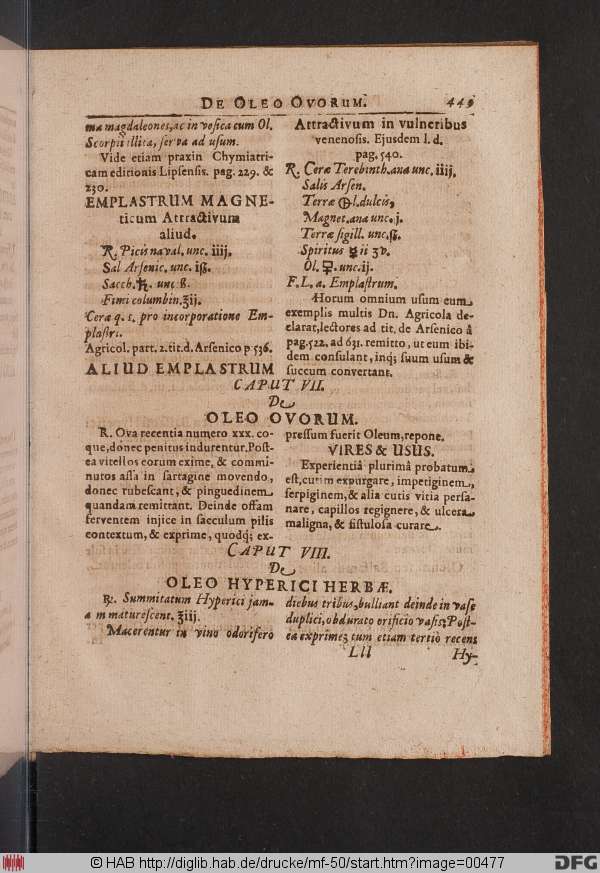 DE OLEO OVORUM. 449
ma magdaleones, ac in vesica cum Ol.
Scorpii illita, serva ad usum.
Vide etiam praxin Chymiatri-
cam editionis Lipsensis. pag. 229. &
230.
EMPLASTRUM MAGNE-
ticum Attractivum
aliud.
℞. Picis naval. unc. iiij.
Sal Arsenic. unc. iß.
Sacch. ♄. unc ß.
Fimi columbin. ʒij.
Ceræ q. s. pro incorporatione Em-
plastri.
Agricol. part. 2. tit. d. Arsenico p 536.
ALIUD EMPLASTRUM
Attractivum in vulneribus
venenosis. Ejusdem l. d.
pag. 540.
℞. Ceræ Terebinth. ana unc. iiij.
Salis Arsen.
Terræ l. dulcis,
Magnet. ana unc. j.
Terræ sigill. unc. ß.
Spiritus ☿ii
Ol. ♀. unc. ij.
F. L. a. Emplastrum.
Horum omnium usum cum
exemplis multis Dn. Agricola de-
clarat, lectores ad tit. de Arsenico â
pag. 522. ad 631. remitto, ut eum ibi-
dem consulant, inq; suum usum &
succum convertant.
CAPUT VII.
De
OLEO OVORUM.
R. Ova recentia numero xxx. co-
que, donec penitus indurentur. Post-
ea vitellos eorum exime, & commi-
nutos assa in sartagine movendo,
donec rubescant, & pinguedinem
quandam remittant. Deinde offam
ferventem injice in sacculum pilis
contextum, & exprime, quodq; ex-
pressum fuerit Oleum, repone.
VIRES & USUS.
Experientiâ plurimâ probatum
est, cutim expurgare, impetiginem,
serpiginem, & alia cutis vitia persa-
nare, capillos regignere, & ulcera
maligna, & fistulosa curare.
CAPUT VIII.
De
OLEO HYPERICI HERBÆ.
℞. Summitatum Hyperici jam-
am maturescent. ʒiij.
Macerentur in vino odorifero
diebus tribus, bulliant deinde in vase
duplici, obdurato orificio vasis; Post-
ea exprime; tum etiam tertiò recens
Lll Hy-
© HAB http://diglib.hab.de/drucke/mf-50/start.htm?image=00477
DFG